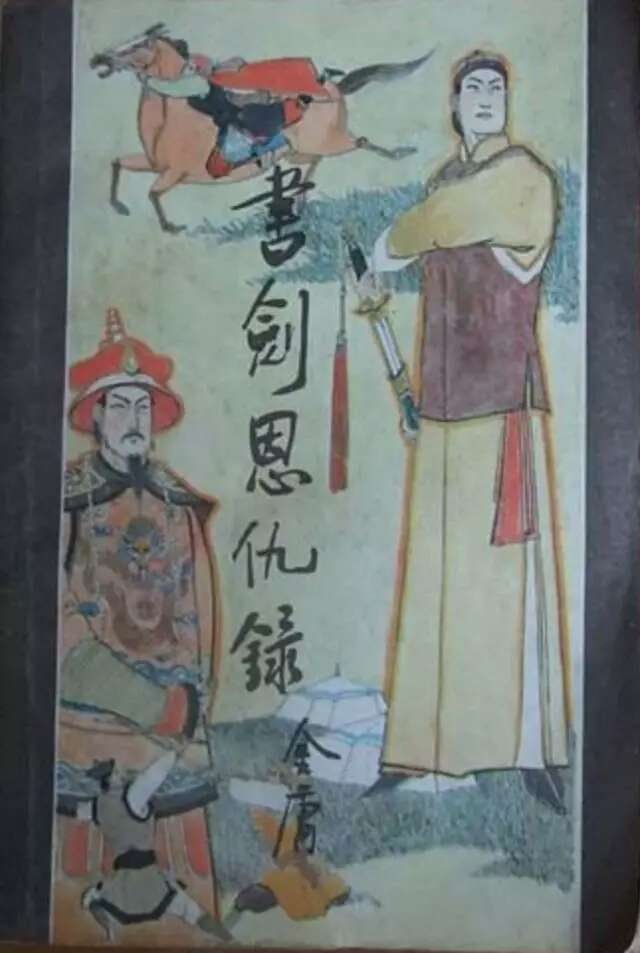 書劍恩仇録
金庸